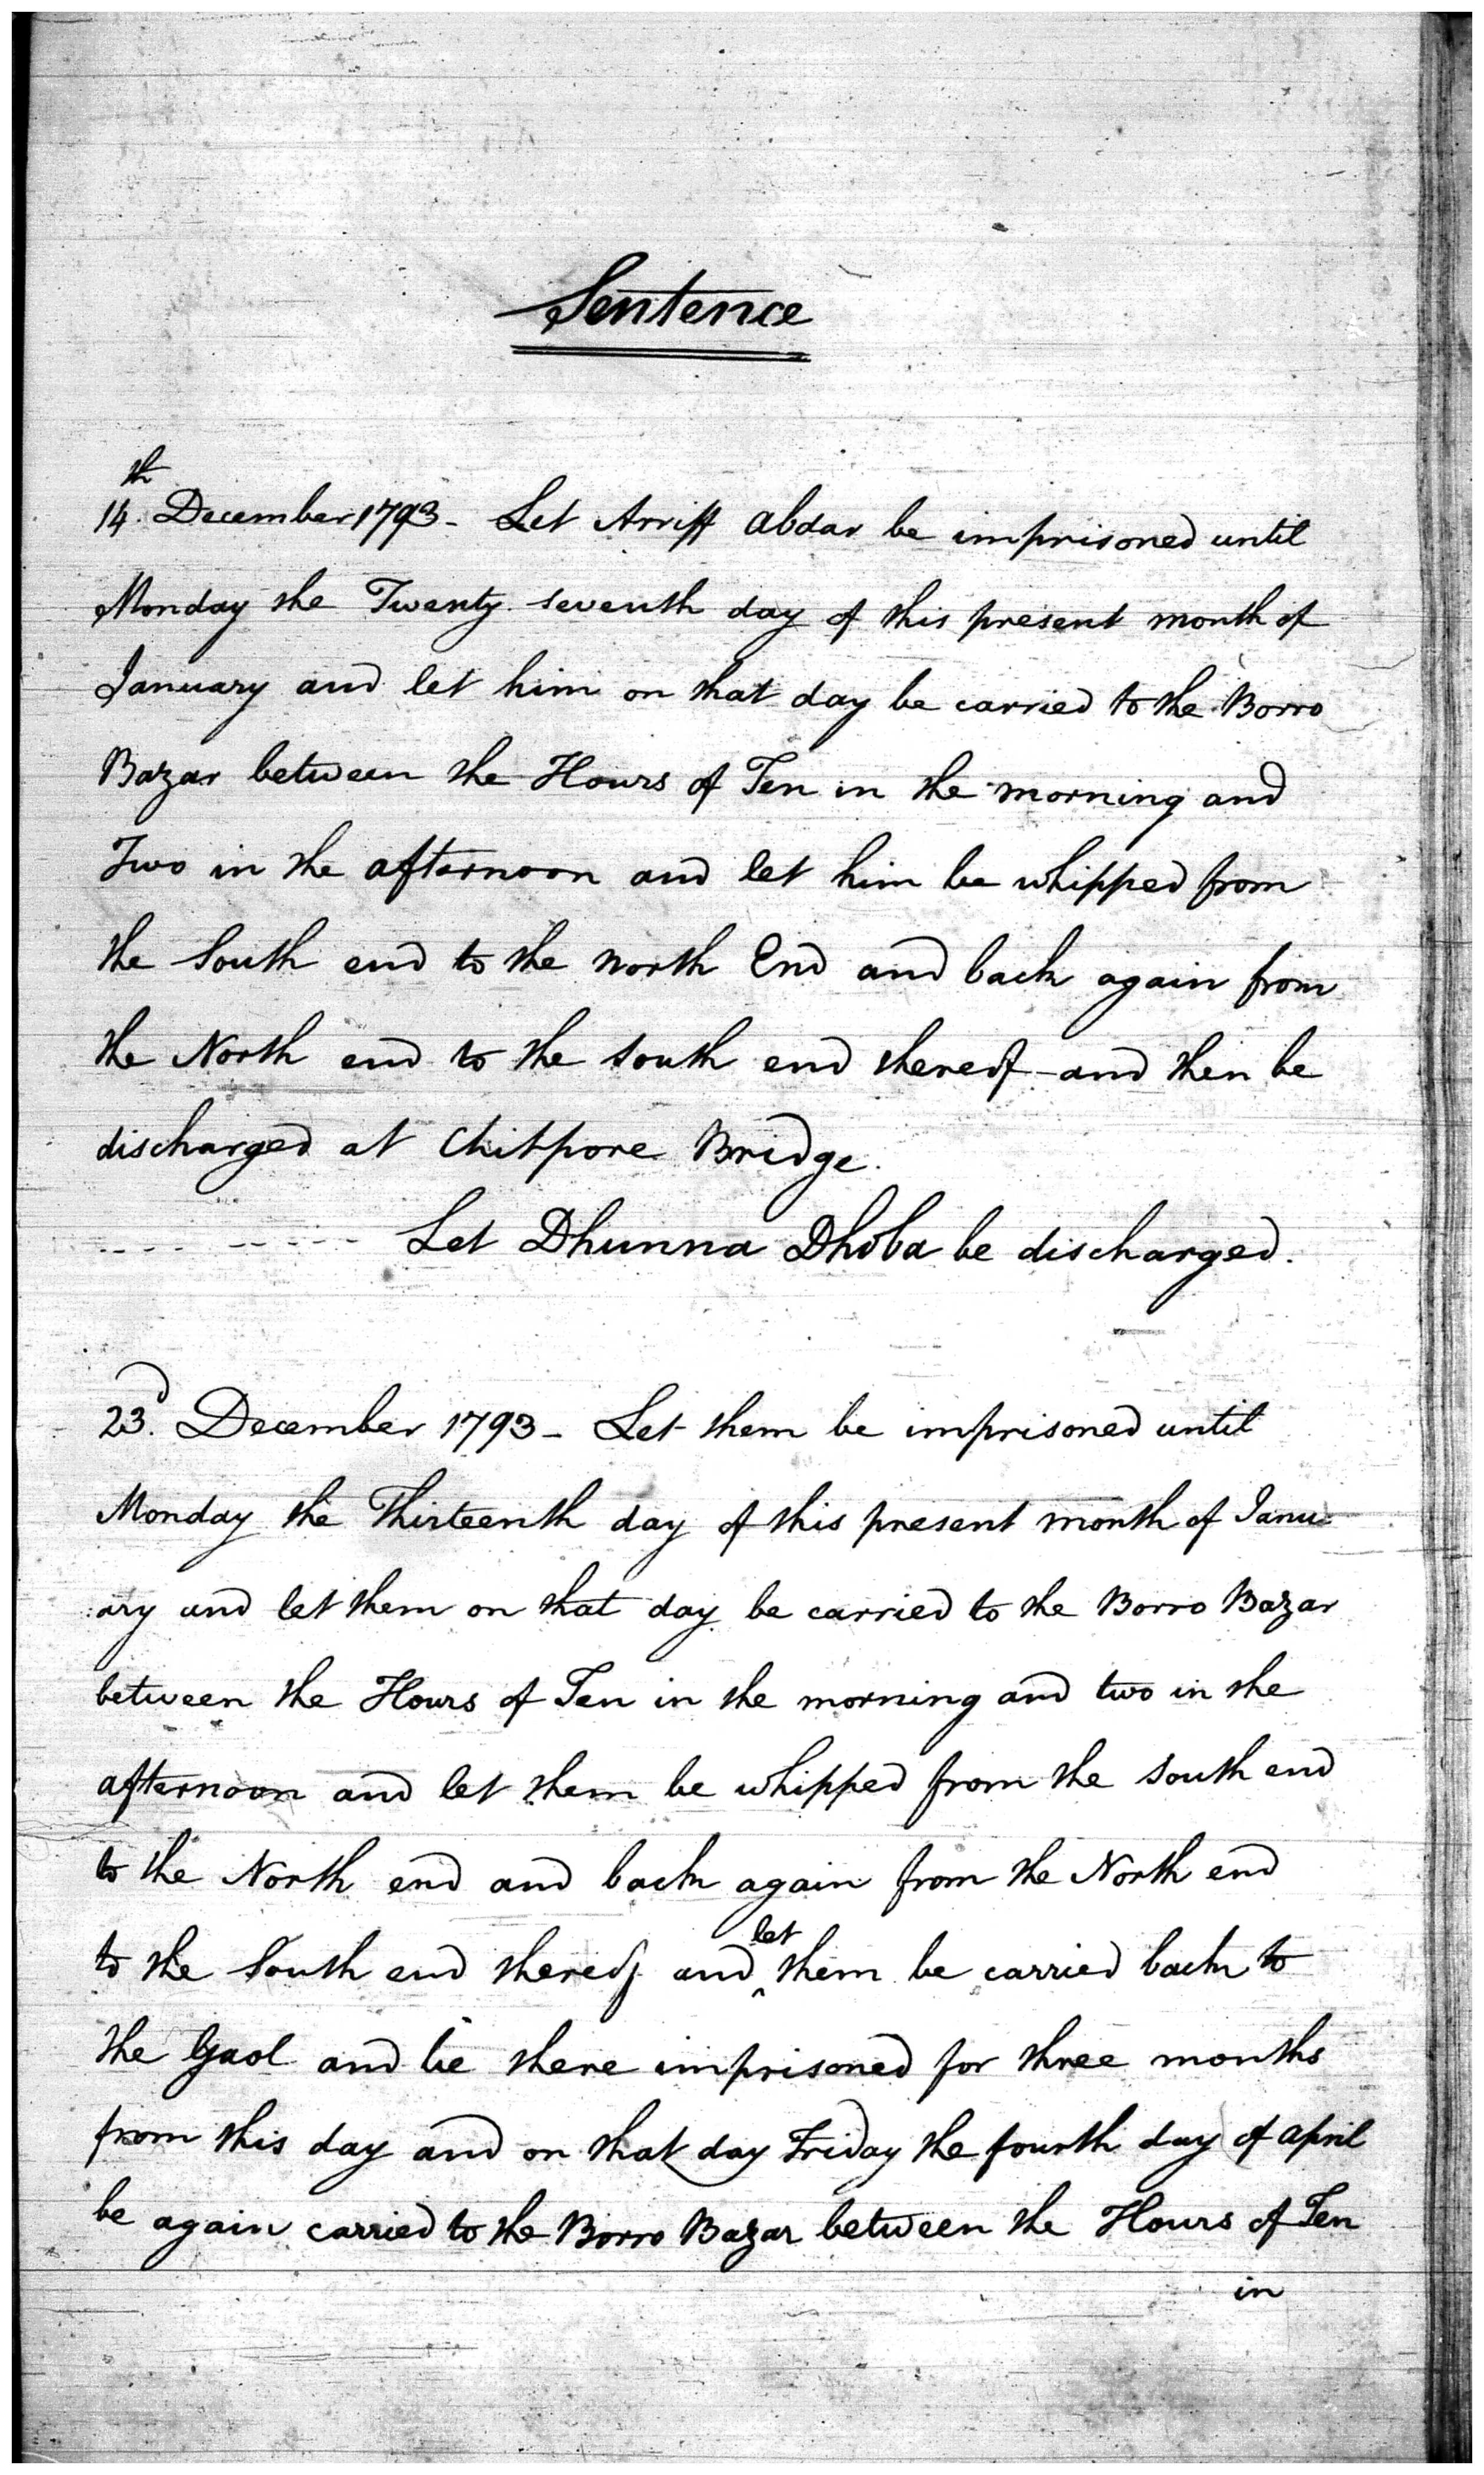 Sentence
14th. December 1793 - Let Arriff Abdar be imprisoned until
Monday the Twenty seventh day of this present month of
January and let him on that day be carried to the Borro
Bazar between the Hours of Ten in the morning and
Two in the afternoon and let him be whipped from
the South end to the North End and back again from
the North end to the South end thereof and then be
discharged at Chitpore Bridge.
Let Dhunna Dhoba be discharged.
23d. December 1793 - Let them be imprisoned until
Monday the Thirteenth day of this present month of Janu-
:ary and let them on that day be carried to the Borro Bazar
between the Hours of Ten in the morning and two in the
afternoon and let them be whipped from the South end
to the North end and back again from the North end
to the South end thereof and let them be carried back to
the Gaol and be there imprisoned for three months
from this day and on that day Friday the fourth day of April
be again carried to the Borro Bazar between the Hours of Ten
in